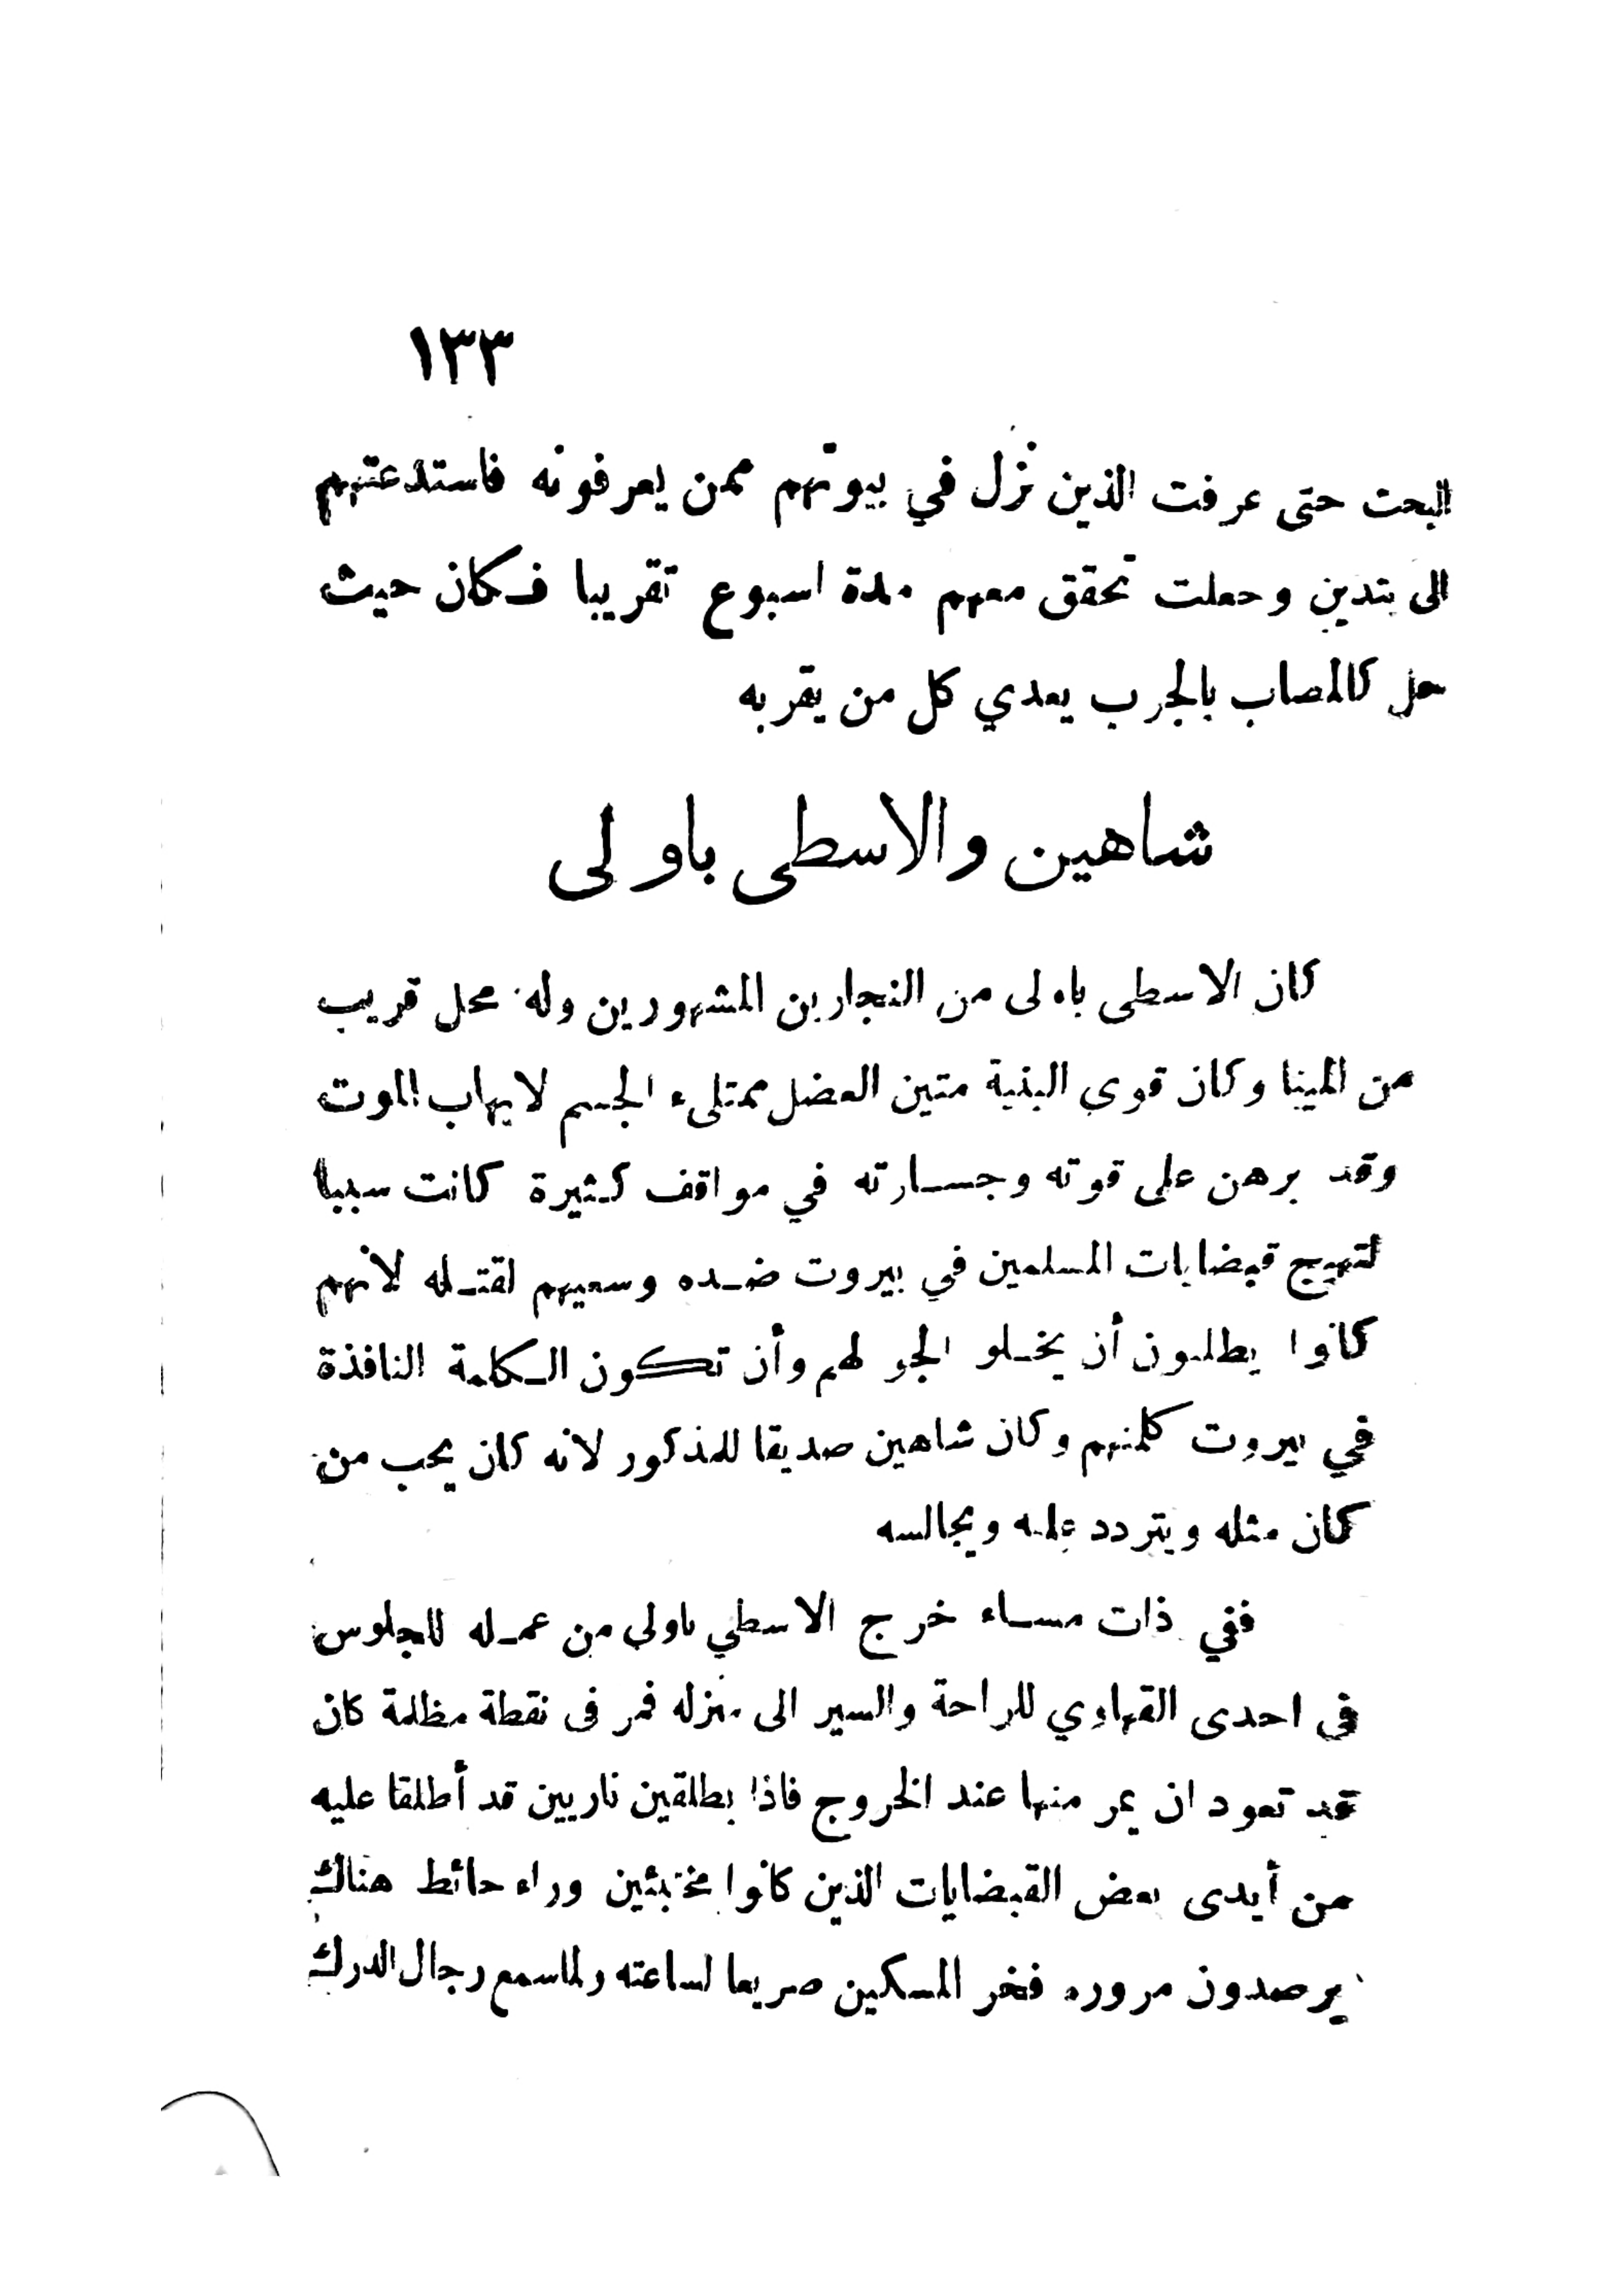 ١٣٣
البحث حتى عرفت الذين نزل في بيوتهم ممن يعرفونه فاستدعتهم
الى بتدين وجعلت تحقق معهم مدة اسبوع تقريبا فكان حيث
حل كالمصاب بالجرب يعدي كل من يقربه
شاهين والاسطى باولى
كان الاسطى باولى من النجارين المشهورين وله محل قريب
من المينا وكان قوى البنية متين العضل ممتلىء الجسم لايهاب الموت
وقد برهن على قوته وجسارته في مواقف كثيرة كانت سببا
لتهيج قبضايات المسلمين في بيروت ضده وسعيهم لقتله لانهم
كانوا يطلبون أن يخلو الجو لهم وأن تكون الكلمة النافذة
في بيروت كلمتهم وكان شاهين صديقا للمذكور لانه كان يحب من
كان مثله ويتردد عليه ويجالسه
ففي ذات مساء خرج الاسطي باولى من عمله للجلوس
فى احدى القهاوي للراحة والسير الى منزله فمر فى نقطة مظلمة كان
قد تعود ان يمر منها عند الخروج فاذا بطلقين ناريين قد أطلقا عليه
من أيدى بعض القبضايات الذين كانوا مختبئين وراء حائط هناك
يرصدون مروره فخر المسكين صريعا لساعته ولما سمع رجال الدرك